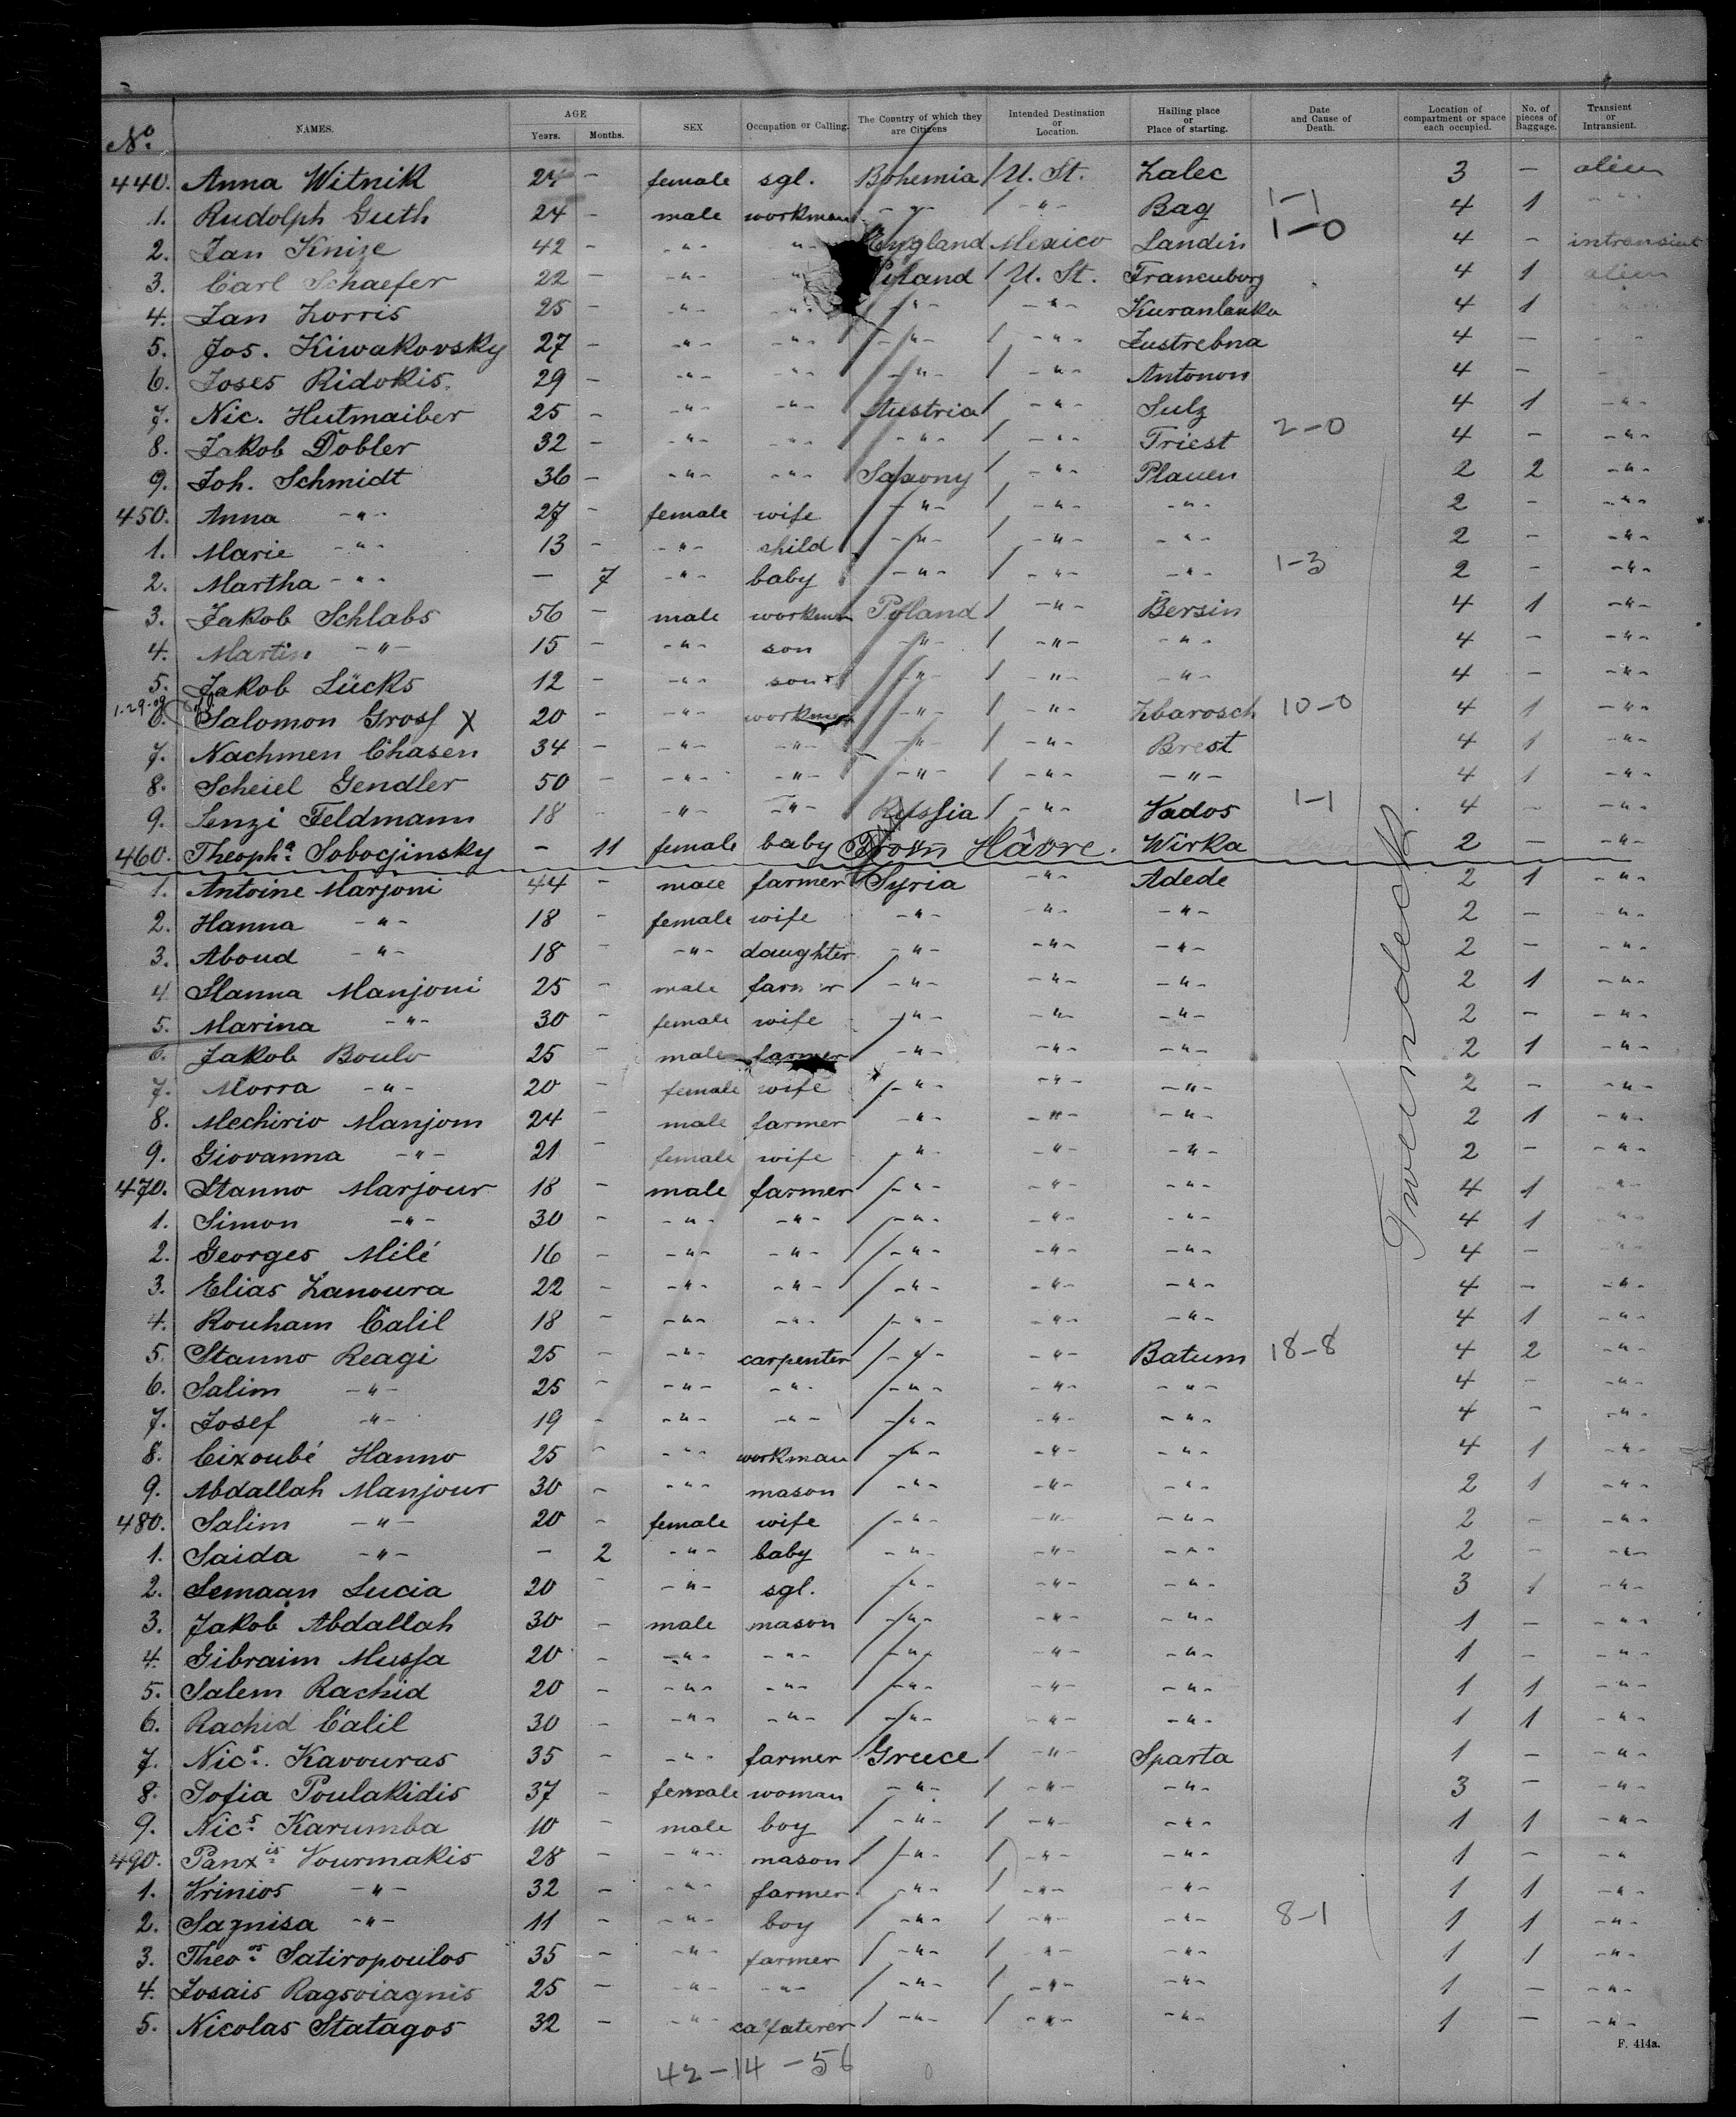 No. NAMES. AGE Years. Months. SEX Occupation or Calling. The Country of which they are Citizens Intended Destination or Location. Hailing place or Place of starting. Date and Cause of Death. Location of compartment or space each occupied. No. of pieces of Baggage. Transient or Intransient.
440. Anna Witnik 24 - female sgl. Bohemia / U. St. Zalec 3 - alien
1. Rudolph Guth 24 - male workman -"- / -"- Bag 1-1 4 1 -"-
2. Jan Knize 42 - -"- -"- England Mexico Landin 1-0 4 - intransient
3. Carl Schaefer 22 - -"- -"- Poland / U. St. Francuborg 4 1 alien
4. Jan Zorris 25 - -"- -"- -"- / -"- Kuranlauka 4 1
5. Jos. Kiwakovsky 27 - -"- -"- -"- / -"- Justrebna 4 -
6. Joses Ridokis. 29 - -"- -"- -"- / -"- Antonon 4 -
7. Nic. Hutmaiber 25 - -"- -"- Austria / -"- Sulz 4 1 -"-
8. Jakob Dobler 32 - -"- -"- -"- / -"- Triest 2-0 4 - -"-
9. Joh. Schmidt 36 - -"- -"- Saxony / -"- Plauen 2 2 -"-
450. Anna -"- 27 - female wife -"- / -"- -"- 2 - -"-
1. Marie -"- 13 - -"- child -"- / -"- -"- 2 - -"-
2. Martha -"- - 7 -"- baby -"- / -"- -"- 1-3 2 - -"-
3. Jakob Schlabs 56 - male workman Poland / -"- Bersin 4 1 -"-
4. Martin -"- 15 - -"- son -"- / -"- -"- 4 - -"-
5. Jakob Lücks 12 - -"- son -"- / -"- -"- 4 - -"-
1-29-09 6. Salomon Gross X 20 - -"- workman -"- / -"- Zbarosch 10-0 4 1 -"-
7. Nachmen Chasen 34 - -"- -"- -"- / -"- Brest 4 1 -"-
8. Scheiel Gendler 50 - -"- -"- -"- / -"- -"- 4 1 -"-
9. Lenzi Feldmann 18 - -"- -"- Russia / -"- Vados 1-1 4 - -"-
460. Theopha. Sobocjinsky - 11 female baby From Hâvre. Wirka 2 - -"-
1. Antoine Marjoni 44 - male farmer Syria -"- Adede 2 1 -"-
2. Hanna -"- 18 - female wife -"- -"- -"- 2 - -"-
3. Aboud -"- 18 - -"- daughter -"- -"- -"- 2 - -"-
4 Hanna Manjoni 25 - male farmer / -"- -"- -"- 2 1 -"-
5. Marina -"- 30 - female wife -"- -"- -"- 2 - -"-
6. Jakob Boulo 25 - male farmer / -"- -"- -"- 2 1 -"-
7. Morra -"- 20 - female wife / -"- -"- -"- 2 - -"-
8. Mechirio Manjom 24 - male farmer -"- -"- -"- 2 1 -"-
9. Giovanna -"- 21 - female wife -"- -"- -"- 2 - -"-
470. Stanno Marjour 18 - male farmer / -"- -"- -"- 4 1 -"-
1. Simon -"- 30 - -"- -"- / -"- -"- -"- 4 1 -"-
2. Georges Milé 16 - -"- -"- / -"- -"- -"- 4 - -"-
3. Elias Zanoura 22 - -"- -"- / -"- -"- -"- 4 - -"-
4. Rouham Calil 18 - -"- -"- / -"- -"- -"- 4 1 -"-
5. Stanno Reagi 25 - -"- carpenter / -"- -"- Batum 18-8 4 2 -"-
6. Salim -"- 25 - -"- -"- / -"- -"- -"- 4 - -"-
7. Josef -"- 19 - -"- -"- -"- -"- -"- 4 - -"-
8. Cixoubé Hanno 25 - -"- workman -"- -"- -"- 4 1 -"-
9. Abdallah Manjour 30 - -"- mason -"- -"- -"- 2 1 -"-
480. Salim -"- 20 - female wife / -"- -"- -"- 2 - -"-
1. Saida -"- - 2 -"- baby -"- -"- -"- 2 - -"-
2. Semaan Lucia 20 - -"- sgl. -"- -"- -"- 3 1 -"-
3. Jakob Abdallah 30 - male mason -"- -"- -"- 1 - -"-
4. Gibraim Mussa 20 - -"- -"- -"- -"- -"- 1 - -"-
5. Salem Rachid 20 - -"- -"- -"- -"- -"- 1 1 -"-
6. Rachid Calil 30 - -"- -"- -"- -"- -"- 1 1 -"-
7. Nics. Kavouras 35 - -"- farmer Greece / -"- Sparta 1 - -"-
8. Sofia Poulakidis 37 - female woman -"- / -"- -"- 3 - -"-
9. Nics. Karumba 10 - male boy / -"- / -"- -"- 1 1 -"-
490. Panxis. Vourmakis 28 - -"- mason / -"- / -"- -"- 1 - -"-
1. Vrinios -"- 32 - -"- farmer -"- / -"- -"- 1 1 -"-
2. Sagnisa -"- 11 - -"- boy / -"- / -"- -"- 8-1 1 1 -"-
3. Theoos. Satiropoulos 35 - -"- farmer / -"- / -"- -"- 1 1 -"-
4. Josais Ragsoiagnis 25 - -"- -"- / -"- / -"- -"- 1 - -"-
5. Nicolas Statagos 32 - -"- calfaterer / -"- / -"- -"- 1 - -"-
Tweendeck
F. 414a.
42-14-56 0